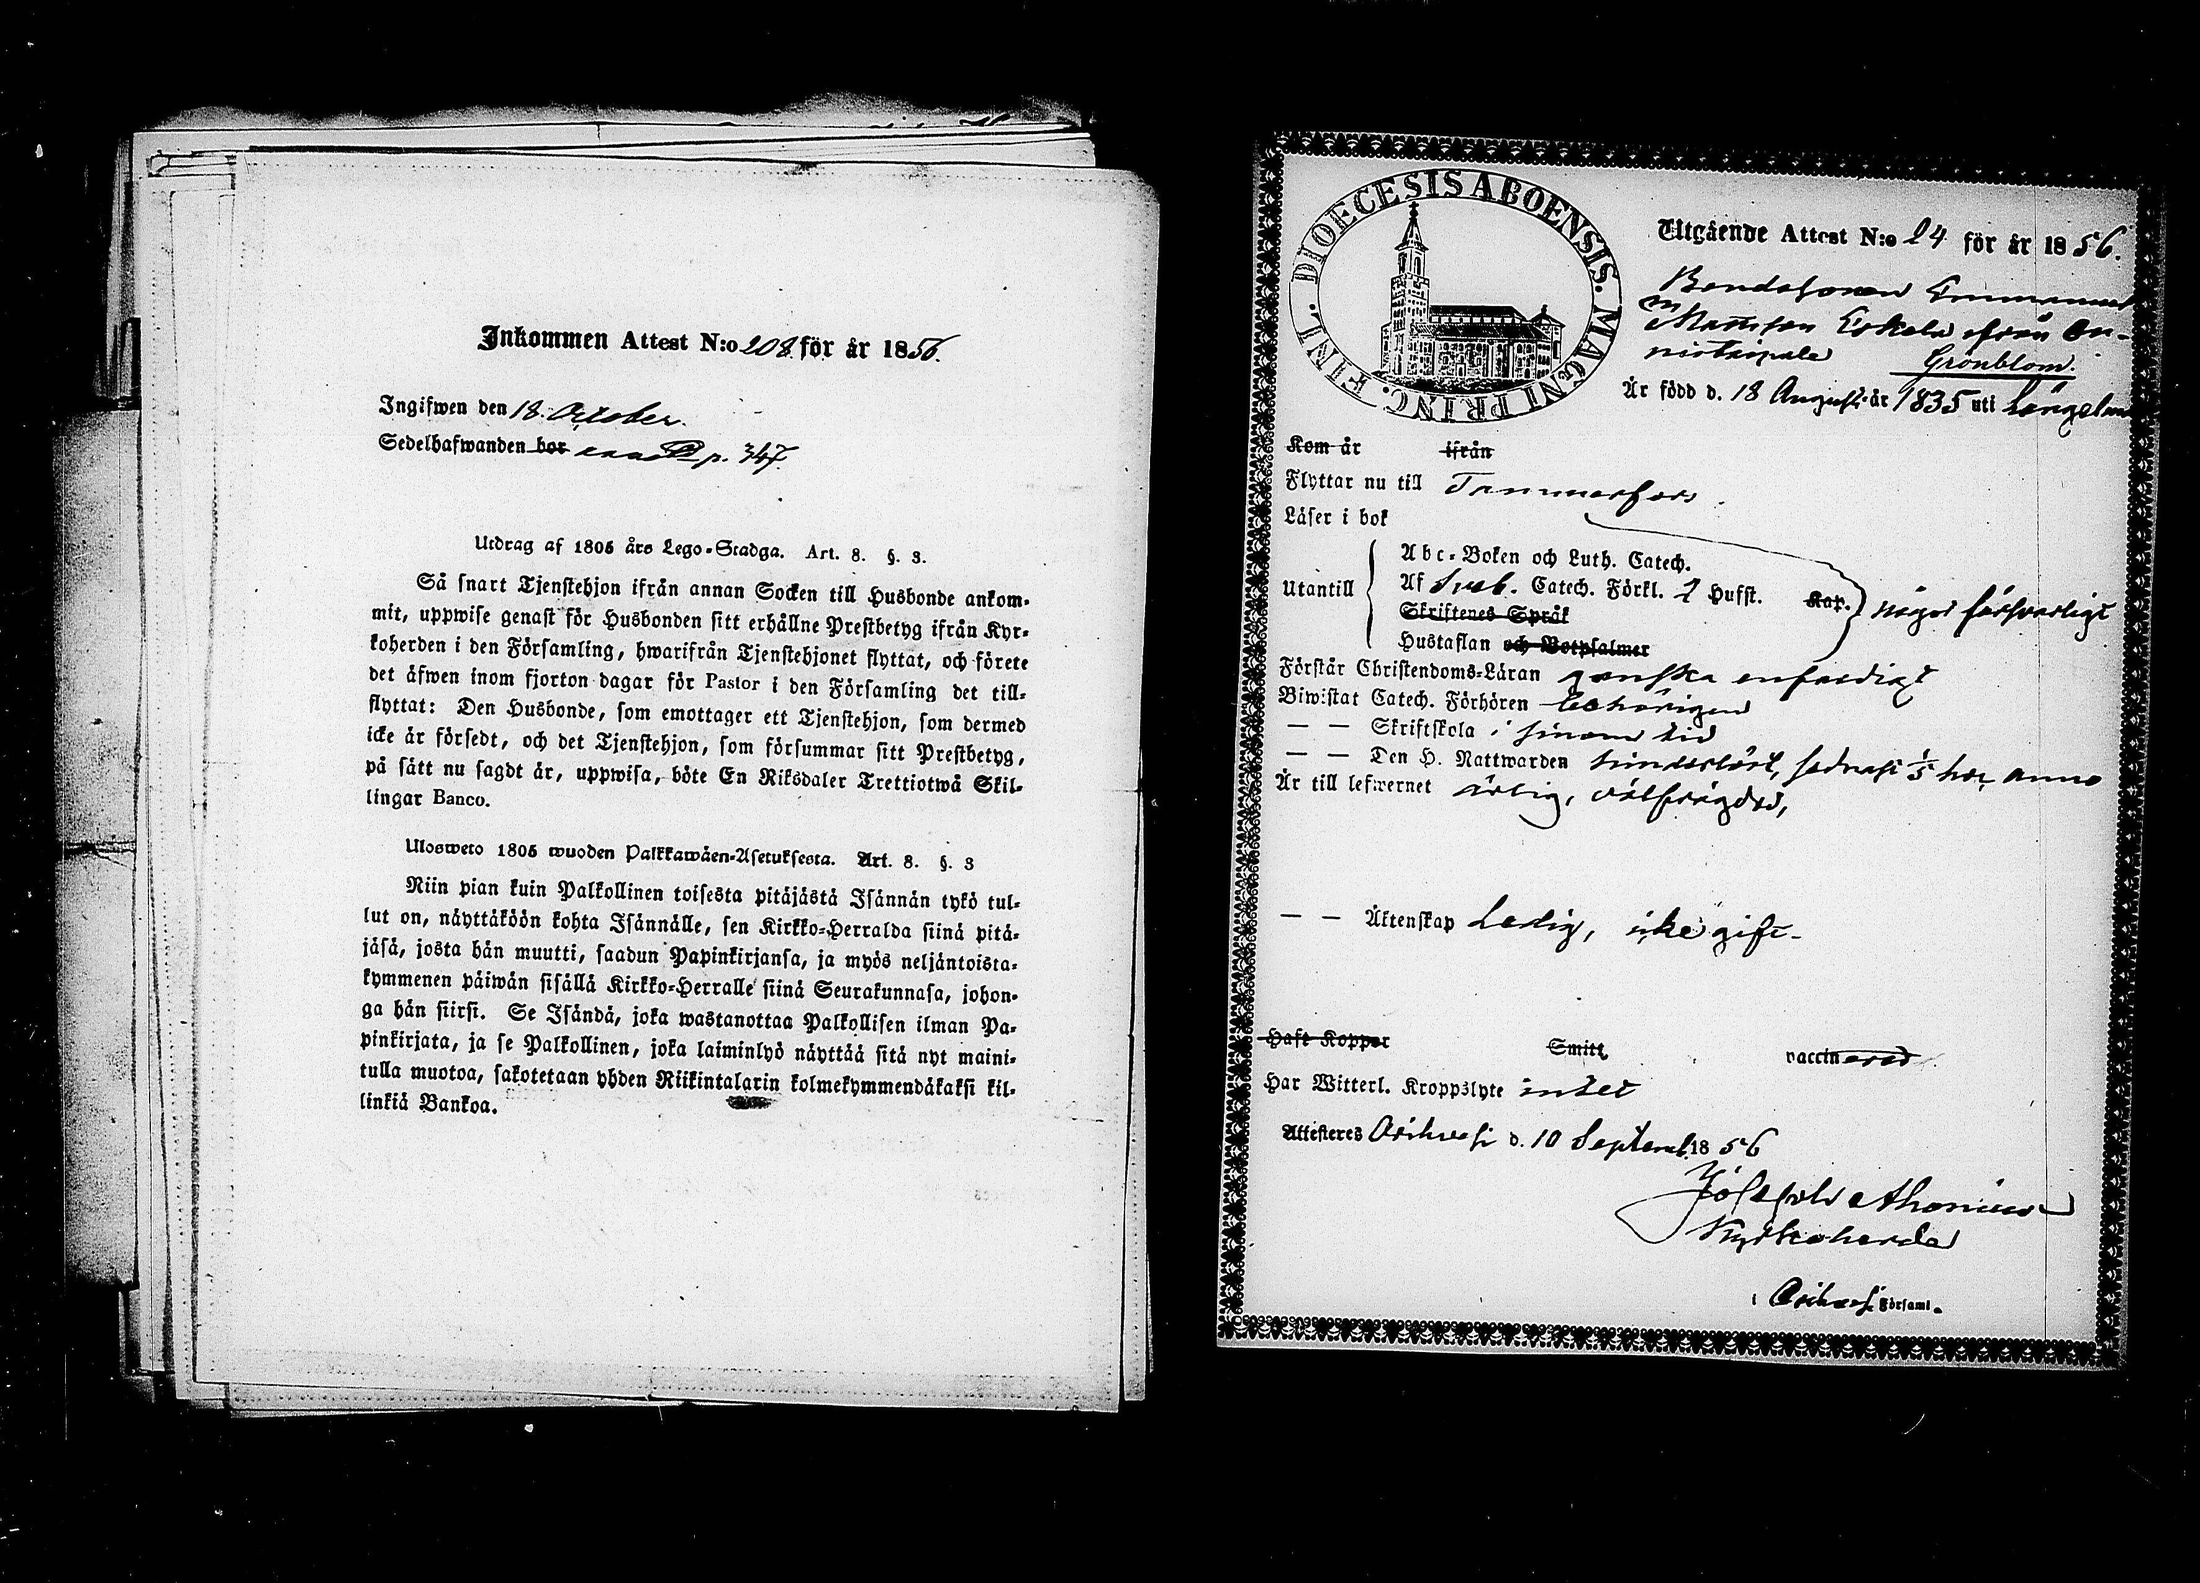 Inkommen Attest N:o 208 för år 1856.
Ingifwen den 18 October.
Sedelhafwanden bor p. 347.
Utdrag af 1805 års Lego-Stadga. Art. 8. §. 3.
Så snart Tjenstehjon ifrån annan Socken till Husbonde ankom-
mit, uppwise genast för Husbonden sitt erhållne Prestbetyg ifrån Kyr-
koherden i den Församling, hwarifrån Tjenstehjonet flyttat, och förete
det äfwen inom fjorton dagar för Pastor i den Församling det till-
flyttat: Den Husbonde, som emottager ett Tjenstehjon, som dermed
icke är försedt, och det Tjenstehjon, som försummar sitt Prestbetyg,
på sätt nu sagdt är, uppwisa, böte En Riksdaler Trettiotwå Skil-
lingar Banco.
Ulosweto 1805 wuoden Palkkawäen-Asetuksesta. Art. 8. §. 3
Niin pian kuin Palkollinen toisesta pitäjästä Isännän tykö tul-
lut on, näyttäköön kohta Isännälle, sen Kirkko-Herralda siinä pitä-
jäsä, josta hän muutti, saadun Papinkirjansa, ja myös neljäntoista-
kymmenen päiwän sisällä Kirkko-Herralle siinä Seurakunnasa, johon-
ga hän siirsi. Se Isändä, joka wastanottaa Palkollisen ilman Pa-
pinkirjata, ja se Palkollinen, joka laiminlyö näyttää sitä nyt maini-
tulla muotoa, sakotetaan yhden Riikintalarin kolmekymmendäkaksi kil-
linkiä Bankoa.
DIOECESIS ABOENSIS. MAGNI PRINC. FINL.
Utgående Attest N:o 24 för år 1856.
Bondesonen Emmanuel
Mattsson Erkelä ifrån On-
nistaipale Grönblom.
Är född d. 18 Augusti år 1835 uti Längelm
Kom år ifrån
Flyttar nu till Tammerfors.
Läser i bok
Abc-Boken och Luth. Catech.
Utantill Af Sveb. Catech. Förkl. 2 Hufst. Kap. något försvarligt
Skriftenes Språk
Hustaflan och Botpsalmer
Förstår Christendoms-Läran ganska enfaldigt
Biwistat Catech. Förhören behörigen
— — Skriftskola i sinom tid
— — Den H. Nattwarden hinderlöst, sednast 1/5 hoc anno
Är till lefwernet ärlig, välfrägdad,
— — Äktenskap Ledig, icke gift.
Haft Koppor Smitt vaccinerad
Har Witterl. Kroppslyte intet
Attesteres Orihvesi d. 10 Septemb. 1856
Josef Wil. Ahonius
Kyrkoherde
i Orihvesi Församl.